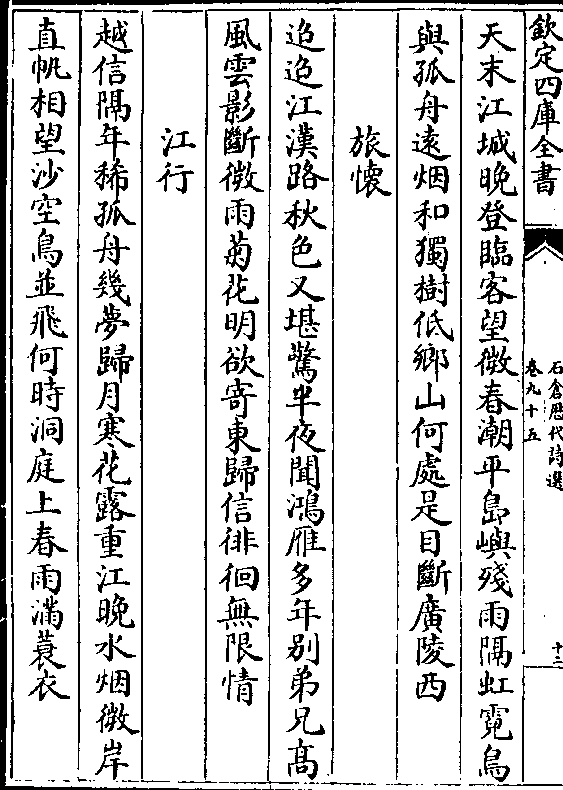 欽定四庫全書
石倉歴代詩選
卷九十五
十三
天末江城晚登臨客望微春潮平島嶼殘雨隔虹霓鳥
與孤舟遠烟和獨樹低鄉山何處是目斷廣陵西
旅懷
迢迢江漢路秋色又堪驚半夜聞鴻雁多年别弟兄髙
風雲影斷微雨菊花明欲寄東歸信徘徊無限情
江行
越信隔年稀孤舟幾夢歸月寒花露重江晚水烟微岸
直帆相望沙空鳥並飛何時洞庭上春雨滿蓑衣